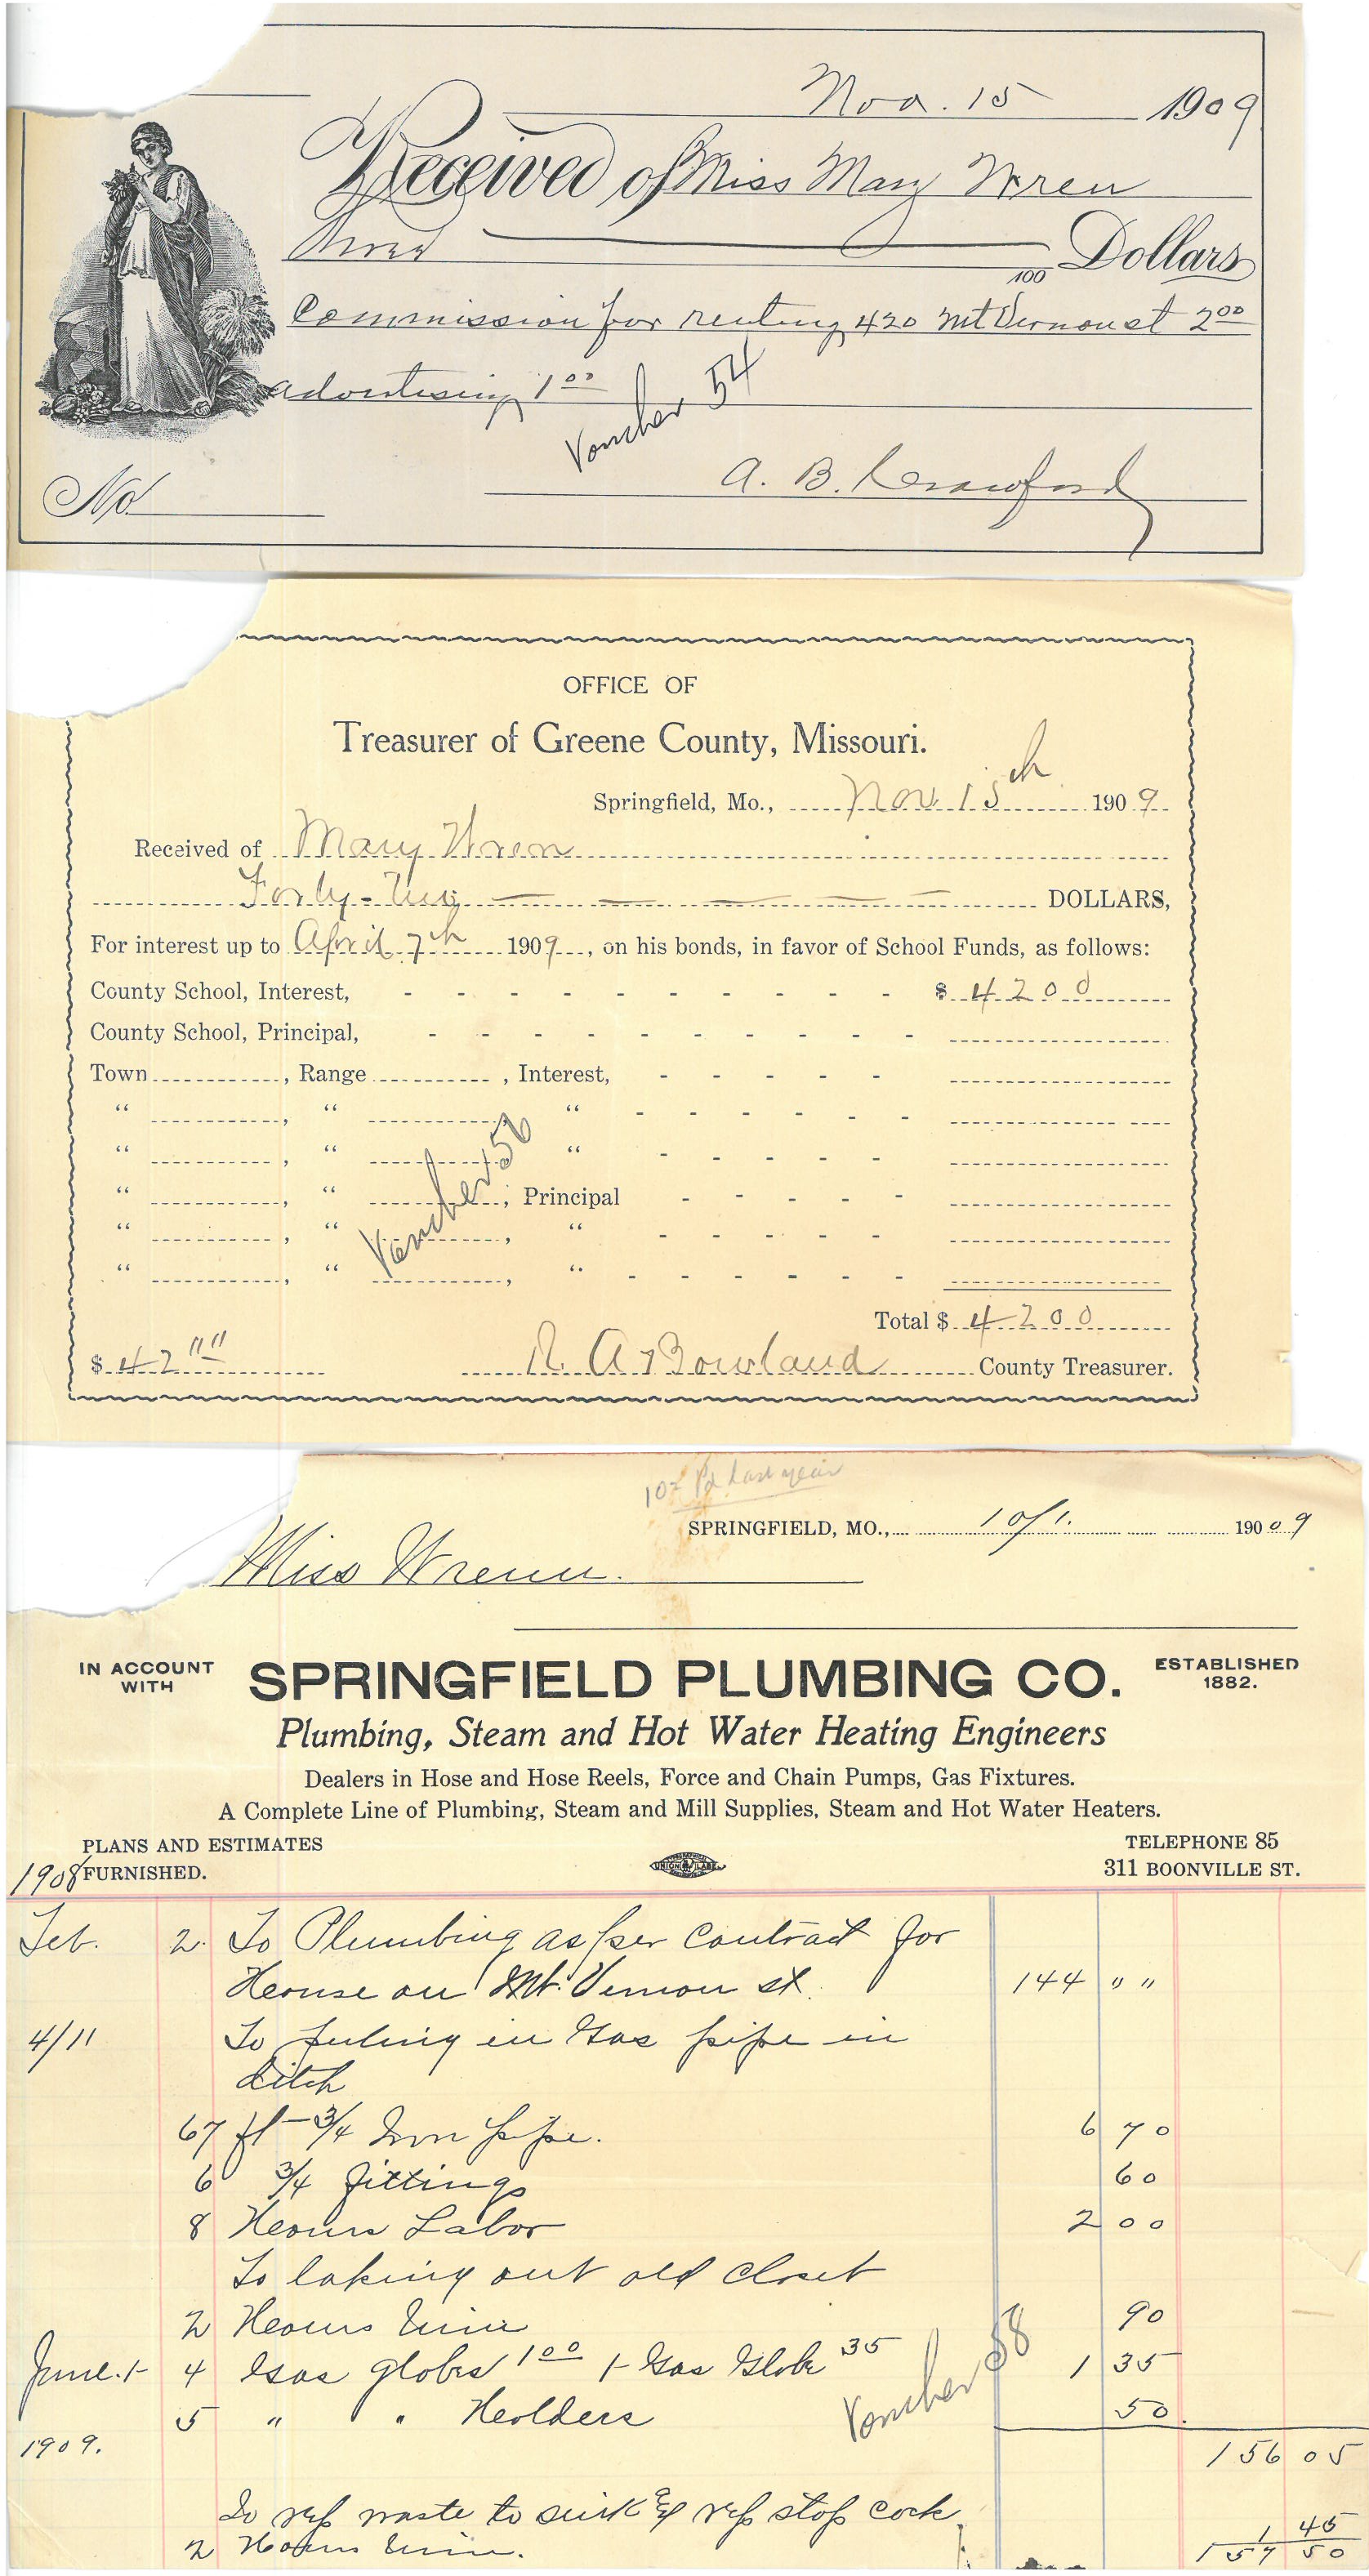 Nov. 15 1909
Received of Miss Mary Wren
Three Dollars
100
Commission for renting 420 Mt Vernon st 2.00
advertising 1.00
Voucher 54
A. B. Crawford
No.
OFFICE OF
Treasurer of Greene County, Missouri.
Springfield, Mo., Nov. 15th 1909
Received of Mary Wren
Forty-Two DOLLARS,
For interest up to April 7th 1909, on his bonds, in favor of School Funds, as follows:
County School, Interest, - - - - - - - - - - $ 42 00
County School, Principal, - - - - - - - - - -
Town , Range , Interest, - - - - -
“ , “ , “ - - - - - -
“ , “ , “ - - - - -
“ , “ , Principal - - - - -
“ , “ , “ - - - - -
“ , “ , “ - - - - - -
Voucher 56
Total $ 42 00
$ 42 "" R. A. Bowland County Treasurer.
Pd Last year
SPRINGFIELD, MO., 10/1. 1909
Miss Wrenn.
IN ACCOUNT WITH
SPRINGFIELD PLUMBING CO.
ESTABLISHED 1882.
Plumbing, Steam and Hot Water Heating Engineers
Dealers in Hose and Hose Reels, Force and Chain Pumps, Gas Fixtures.
A Complete Line of Plumbing, Steam and Mill Supplies, Steam and Hot Water Heaters.
PLANS AND ESTIMATES TELEPHONE 85
1908 FURNISHED. UNION LABEL 311 BOONVILLE ST.
Feb. 2. To Plumbing as per Contract for
House on Mt. Vernon st. 144 " "
4/11 To puting in Gas pipe in
ditch
67 ft - 3/4 Iron pipe. 6 70
6 3/4 fittings 60
8 Hours Labor 2 00
To taking out old closet
2 Hours time 90
June. 1 4 Gas globes 1.00 1 Gas Globe 35 1 35
5 " " Holders 50
Voucher 58
1909. 156 05
To rep waste to sink & rep stop cock
1 45
2 Hours time. 157 50